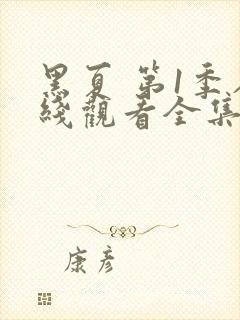 黑夏 第1季在
綫觀看全集
康彦